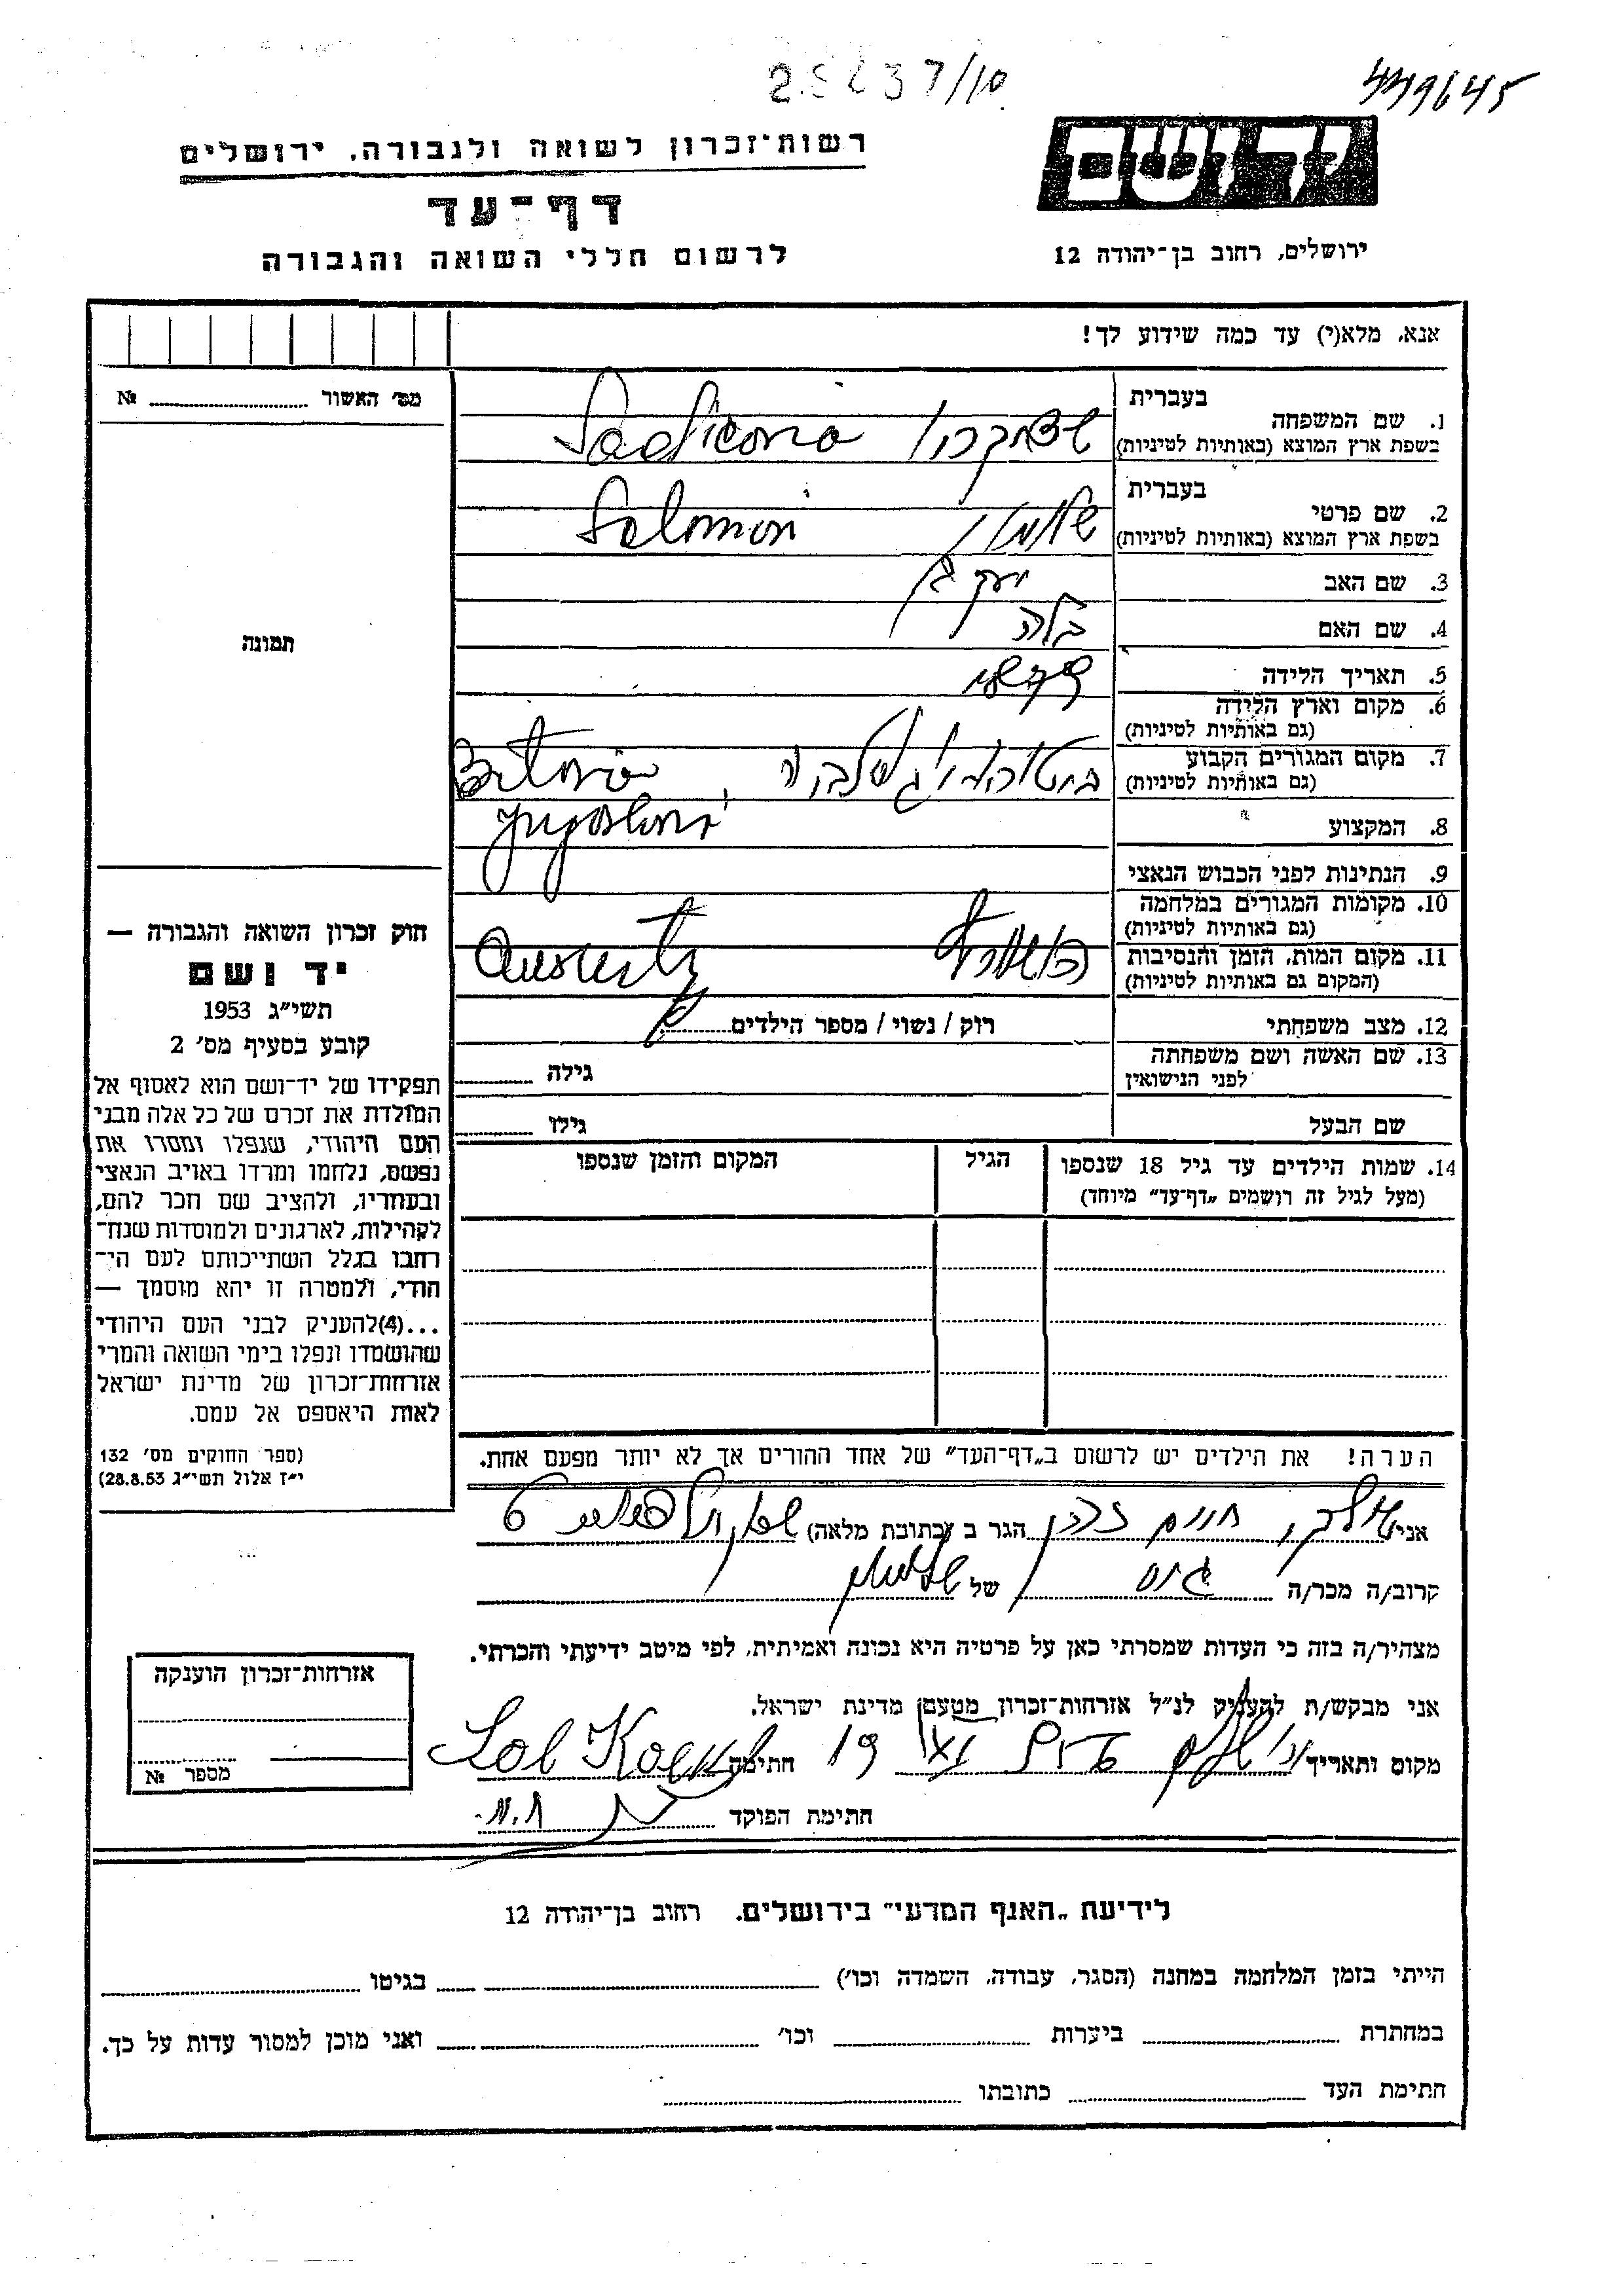 449645
רשות־זכרון לשואה ולגבורה, ירושלים
יד ושם
דף־עד
ירושלים, רחוב בן־יהודה 12
לרשום חללי השואה והגבורה
אנא, מלא(י) עד כמה שידוע לך!
מס׳ האשור № 
1. שם המשפחה
בעברית
בשפת ארץ המוצא (באותיות לטיניות)
2. שם פרטי
בעברית
שלמון Solomon
בשפת ארץ המוצא (באותיות לטיניות)
3. שם האב יעקב
4. שם האם בלה
תמונה
5. תאריך הלידה
6. מקום וארץ הלידה
(גם באותיות לטיניות)
7. מקום המגורים הקבוע
(גם באותיות לטיניות)
ביטולה יוגוסלביה Bitona
8. המקצוע
9. הנתינות לפני הכבוש הנאצי
10. מקומות המגורים במלחמה
(גם באותיות לטיניות)
11. מקום המות, הזמן והנסיבות
(המקום גם באותיות לטיניות)
12. מצב משפחתי רוק / נשוי / מספר הילדים
13. שם האשה ושם משפחתה
לפני הנישואין
גילה
שם הבעל גילו
14. שמות הילדים עד גיל 18 שנספו
(מעל לגיל זה רושמים „דף־עד״ מיוחד)
הגיל
המקום והזמן שנספו
חוק זכרון השואה והגבורה —
יד ושם
תשי״ג 1953
קובע בסעיף מס׳ 2
תפקידו של יד־ושם הוא לאסוף אל
המולדת את זכרם של כל אלה מבני
העם היהודי, שנפלו ומסרו את
נפשם, נלחמו ומרדו באויב הנאצי
ובעוזריו, ולהציב שם וזכר להם,
לקהילות, לארגונים ולמוסדות שנח־
רבו בגלל השתייכותם לעם הי־
הודי, ולמטרה זו יהא מוסמך —
...(4)להעניק לבני העם היהודי
שהושמדו ונפלו בימי השואה והמרי
אזרחות־זכרון של מדינת ישראל
לאות היאספם אל עמם.
(ספר החוקים מס׳ 132
י״ז אלול תשי״ג 28.8.53)
הערה! את הילדים יש לרשום ב„דף־העד״ של אחד ההורים אך לא יותר מפעם אחת.
אני חיים הגר ב (כתובת מלאה) 6
קרוב/ה מכר/ה גיס של
מצהיר/ה בזה כי העדות שמסרתי כאן על פרטיה היא נכונה ואמיתית, לפי מיטב ידיעתי והכרתי.
אני מבקש/ת להעניק לנ״ל אזרחות־זכרון מטעם מדינת ישראל.
מקום ותאריך ירושלים חתימה
חתימת הפוקד
אזרחות־זכרון הוענקה
מספר №
לידיעת „האגף המדעי״ בירושלים, רחוב בן־יהודה 12
הייתי בזמן המלחמה במחנה (הסגר, עבודה, השמדה וכו׳) בגיטו
במחתרת ביערות וכו׳ ואני מוכן למסור עדות על כך.
חתימת העד כתובתו